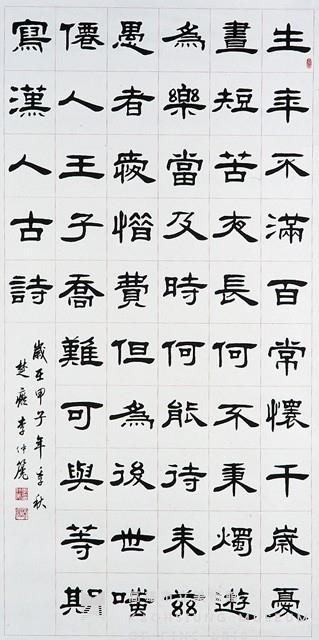 生年不滿百常懷千歲憂
晝短苦夜長何不秉燭遊
為樂當及時何能待來茲
愚者愛惜費但為後世嗤
僊人王子喬難可與等期
寫漢人古詩
歲在甲子年季秋
李仲